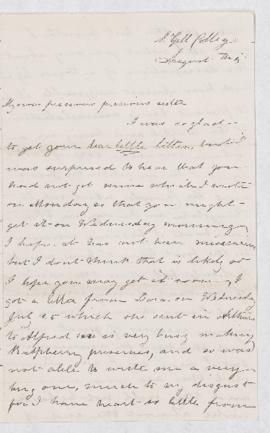 McGill College
August
My own precious precious sister
I was so glad
to get your dear little letter, but I
was surprised to hear that you
had not got mine which I wrote
on Monday so that you might
get it on Wednesday morning
I hope it has not been
but I don't think that is likely so
I hope you may get it soon. I
got a letter from Dora on Wednesday
which she sent in
to Alfred is very busy making
Raspberry preserves, and so was
not able to write me a very
long one, much to my disgust
for I have heart so little from